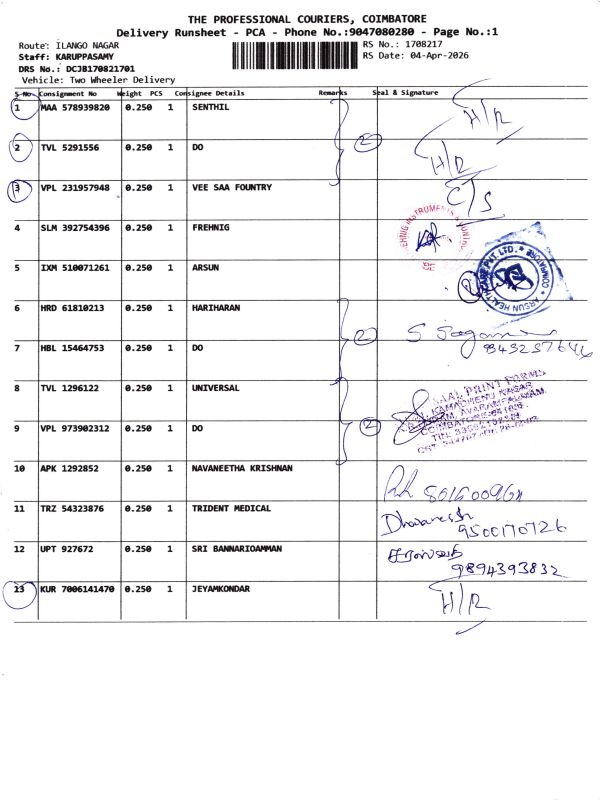 THE PROFESSIONAL COURIERS, COIMBATORE
Delivery Runsheet - PCA - Phone No.:9047080280 - Page No.:1
Route: ILANGO NAGAR
RS No.: 1708217
Staff: KARUPPASAMY
RS Date: 04-Apr-2026
DRS No.: DCJB170821701
Vehicle: Two Wheeler Delivery
S No Consignment No Weight PCS Consignee Details Remarks Seal & Signature
1 MAA 578939820 0.250 1 SENTHIL H/R
2 TVL 5291556 0.250 1 DO 2 H/R
3 VPL 231957948 0.250 1 VEE SAA FOUNTRY C/S
4 SLM 392754396 0.250 1 FREHNIG
5 IXM 510071261 0.250 1 ARSUN
ARSUN HEALTHCARE PVT. LTD. * COIMBATORE *
6 HRD 61810213 0.250 1 HARIHARAN
7 HBL 15464753 0.250 1 DO 2
8 TVL 1296122 0.250 1 UNIVERSAL
9 VPL 973902312 0.250 1 DO 2
10 APK 1292852 0.250 1 NAVANEETHA KRISHNAN
11 TRZ 54323876 0.250 1 TRIDENT MEDICAL
9500170726
12 UPT 927672 0.250 1 SRI BANNARIOAMMAN
9894393832
13 KUR 7006141470 0.250 1 JEYAMKONDAR H/R